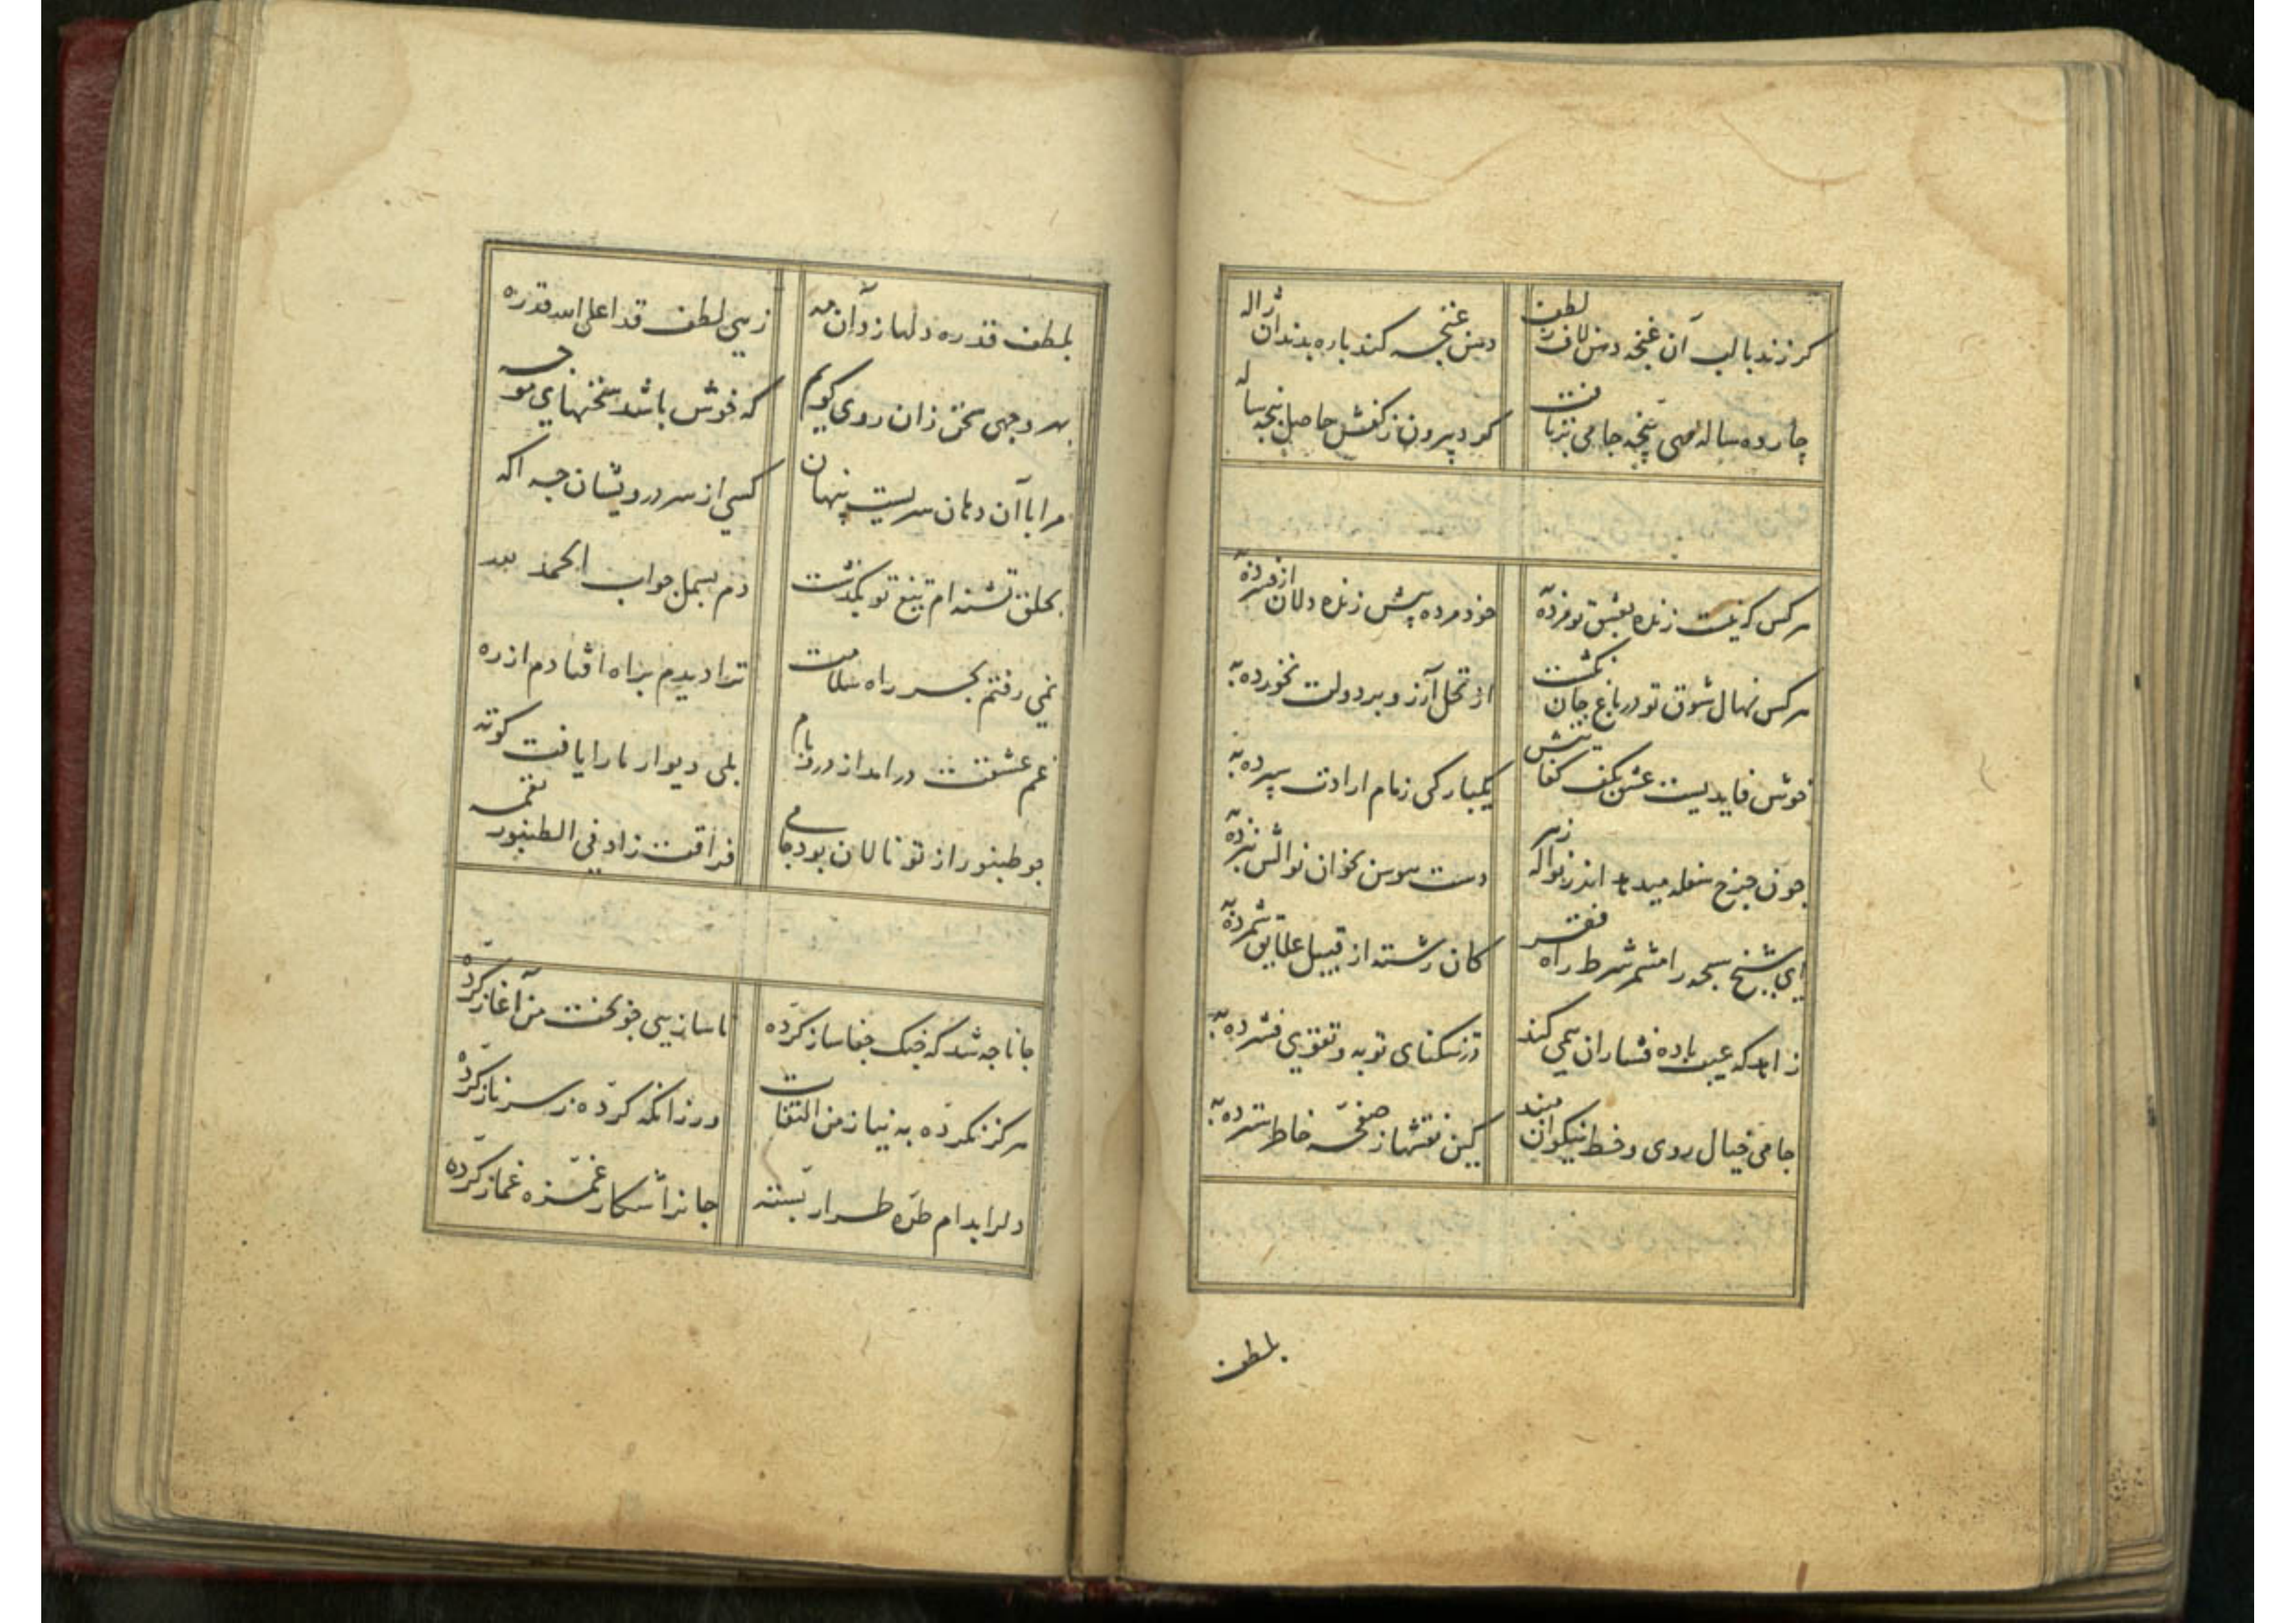 گر زند با لب آن غنچه دهن لاف لطف دهن غنچه کند پاره بدندان ژاله
چارده ساله مهی پنجه جامی بتافت کرد بیرون ز کفش حاصل پنجه ساله
هر کس که نیست زنده بعشق تو مرده به خود مرده پیش زنده دلان از فسرده به
هر کس نهال شوق تو در باغ جان نکشت از نخل آرزو بر دولت نخورده به
خوش قایدیست عشق بکف
یکبارگی زمام ارادت سپرده به
چون چرخ سفله میدهد اندر نواله زهر دست هوس بخوان نوالش نبرده به
ای شیخ سبحه را مشمر شرط راه فقر کان رشته از قبیل علایق شمرده به
زاهد که عیب باده فشاران همی کند در تنکنای توبه و تقوی فشرده به
جامی خیال روی و خط نیکوان مبند کین نقشها ز صفحه خاطر سترده به
بلطف
بلطف قد ره دلها زد آن مه زهی لطف قد اعلی الله قدره
بهر وجهی سخن زان روی گویم که خوش باشد سخنهای موجه
مرا با آن دهان سریست پنهان کسی از سر درویشان چه آگه
بحلق تشنه ام تیغ تو بگذشت دم بسمل جواب الحمد لله
نمی رفتم بجز راه سلامت ترا دیدم براه افتادم از ره
غم عشقت درآمد از در و بام بلی دیوار ما را یافت کوته
چو طنبور از تو نالان بود جامی فراقت زاد فی الطنبور نغمه
جانا چه شد که چنگ جفا ساز کرده ناسازیی چو بخت من آغاز کرده
هرگز نکرده به نیاز من التفات ور زانکه کرده ز سر ناز کرده
دلرا بدام طره طرار بسته جانرا شکار غمزه غماز کرده